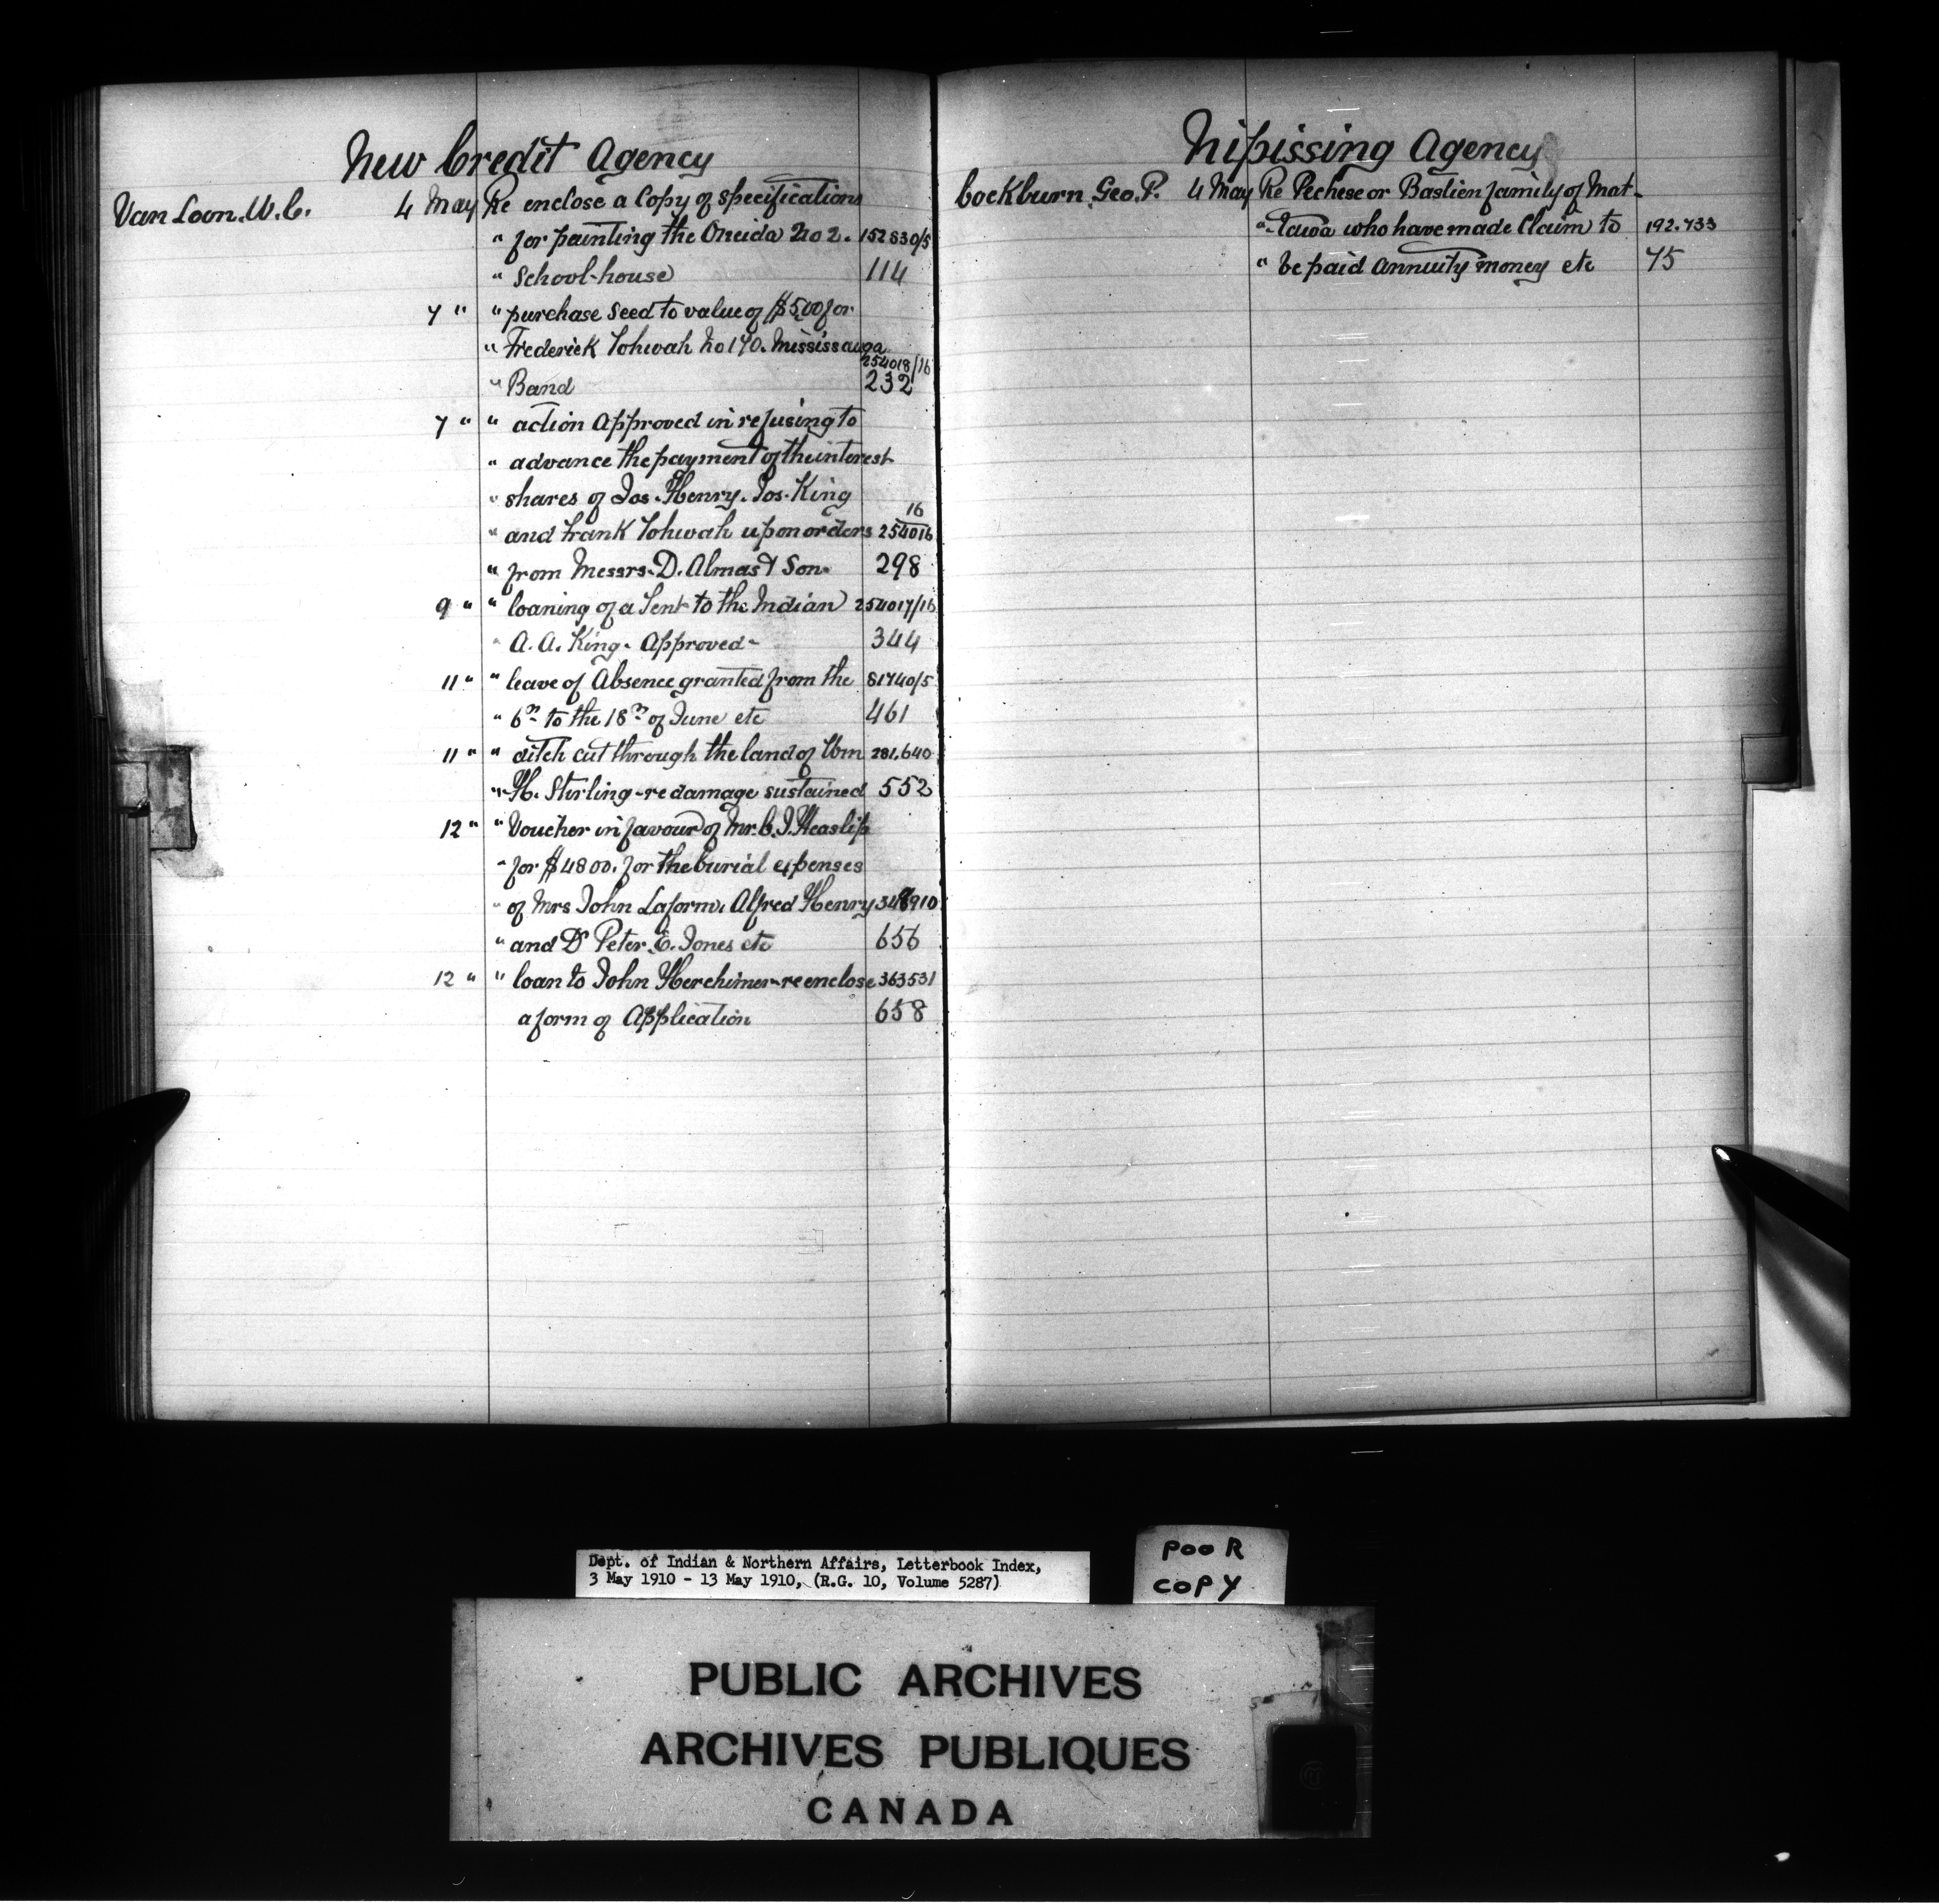 New Credit Agency
Van Loon. W. C. 4 May Re enclose a Copy of specifications
" for painting the Oneida No 2. 152830/5
" School-house 114
7 " " purchase seed to value of $5,00 for
" Frederick Tohwah No 170. Mississauga
254018/16
" Band 232
7 " " action Approved in refusing to
" advance the payment of the interest
" shares of Jas. Henry. Jos. King
16
" and Frank Tohwah upon orders 254016
" from Messrs. D. Almas & Son. 298
9 " " loaning of a Tent to the Indian 254017/16
" A. A. King. Approved- 344
11 " " leave of Absence granted from the 81740/5
" 6th to the 18th of June etc 461
11 " " ditch cut through the land of Wm 281,640
" H. Stirling - re damage sustained 552
12 " " Voucher in favour of Mr. C. J. Heaslip
" for $4800. for the burial expenses
" of Mrs John Laform, Alfred Henry 348910
" and Dr Peter E. Jones etc 656
12 " " loan to John Herchimer - re enclose 363531
a form of Application 658
Nipissing Agency
Cockburn Geo. P. 4 May Re Pechese or Bastien family of Mat-
" -tawa who have made Claim to 192.733
" be paid annuity money etc 75
Dept. of Indian & Northern Affairs, Letterbook Index,
3 May 1910 - 13 May 1910, (R.G. 10, Volume 5287)
POOR
COPY
PUBLIC ARCHIVES
ARCHIVES PUBLIQUES
CANADA